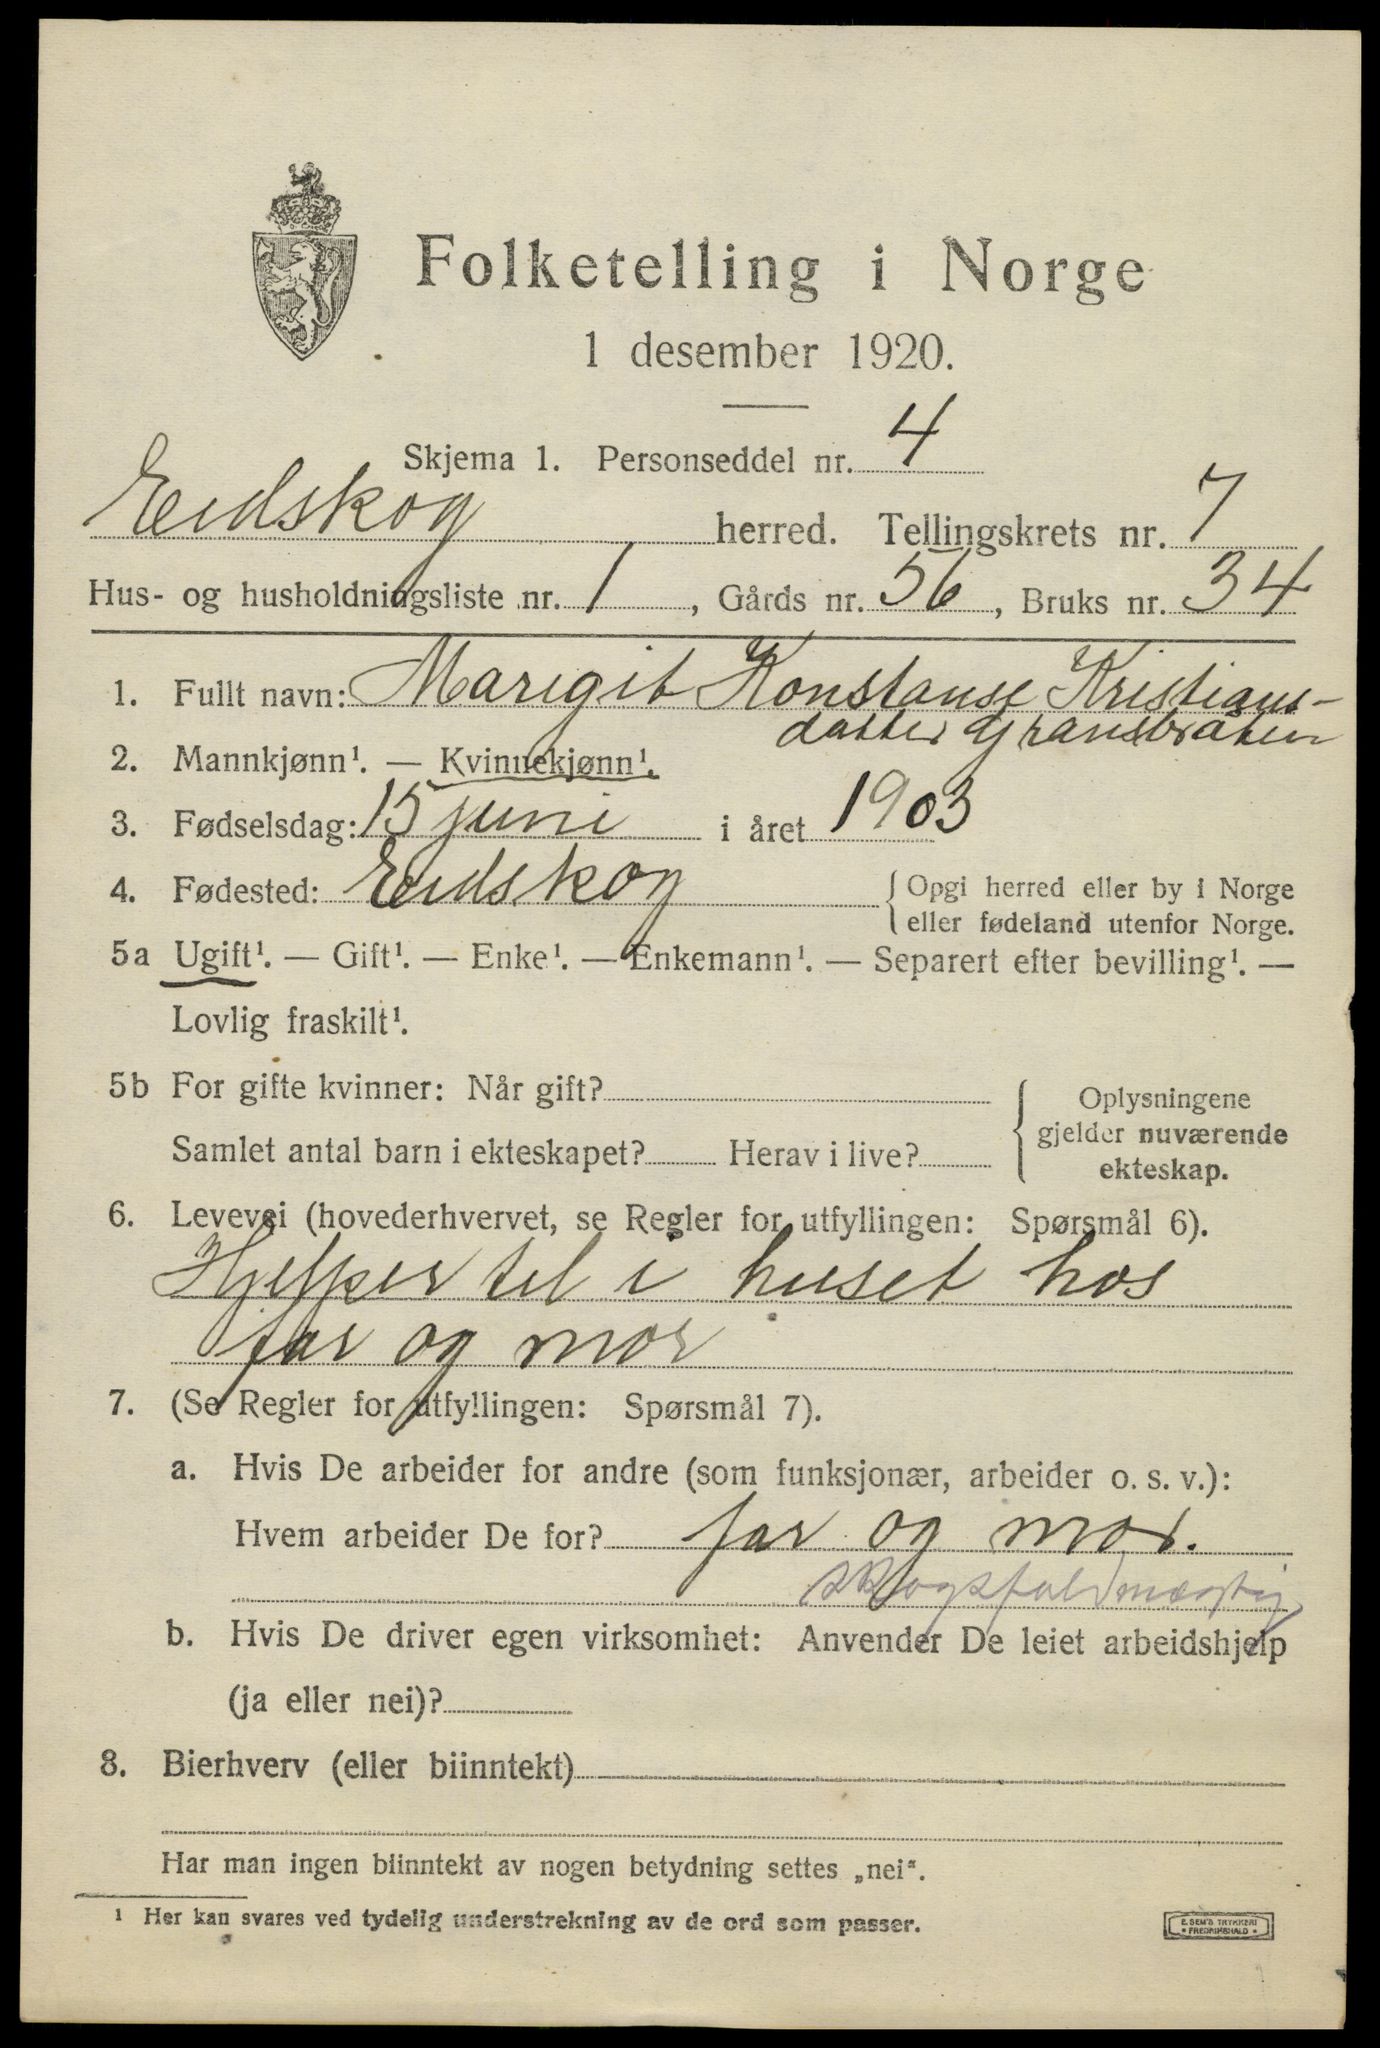 Folketelling i Norge
1 desember 1920.
Skjema 1. Personseddel nr. 4
Eidskog herred. Tellingskrets nr. 7
Hus- og husholdningsliste nr. 1, Gårds nr. 56, Bruks nr. 34
1. Fullt navn: Marigit Konstanse Kristians-
datter Gransbråten
2. Mannkjønn¹. — Kvinnekjønn¹.
3. Fødselsdag: 15 juni i året 1903
4. Fødested: Eidskog { Opgi herred eller by i Norge
eller fødeland utenfor Norge.
5a Ugift¹. — Gift¹. — Enke¹. — Enkemann¹. — Separert efter bevilling¹. —
Lovlig fraskilt¹.
5b For gifte kvinner: Når gift? { Oplysningene
gjelder nuværende
Samlet antal barn i ekteskapet? Herav i live? ekteskap.
6. Levevei (hovederhvervet, se Regler for utfyllingen: Spørsmål 6).
Hjelper til i huset hos
far og mor
7. (Se Regler for utfyllingen: Spørsmål 7).
a. Hvis De arbeider for andre (som funksjonær, arbeider o. s. v.):
Hvem arbeider De for? far og mor.
b. Hvis De driver egen virksomhet: Anvender De leiet arbeidshjelp
(ja eller nei)?
8. Bierhverv (eller biinntekt)
Har man ingen biinntekt av nogen betydning settes „nei“.
¹ Her kan svares ved tydelig understrekning av de ord som passer.
E. SEM'S TRYKKERI
• FREDRIKSHALD •